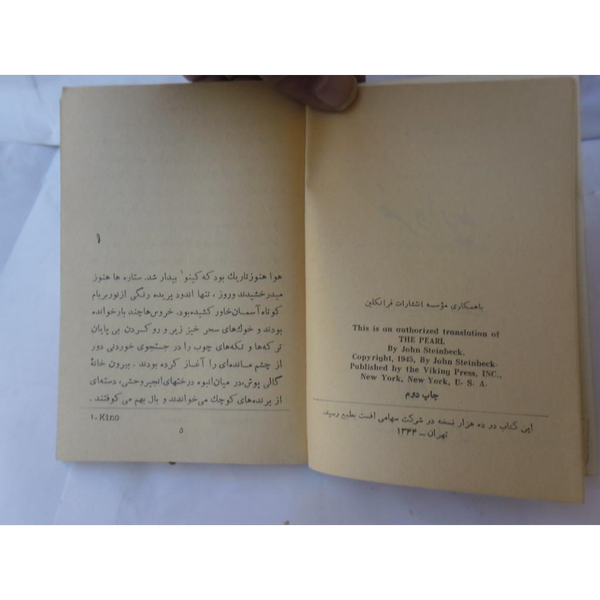 باهمکاری مؤسسه انتشارات فرانکلین
This is an authorized translation of
THE PEARL
By John Steinbeck.
Copyright, 1945, By John Steinbeck.
Published by the Viking Press, INC.,
New York, New York, U. S. A.
چاپ دوم
این کتاب در ده هزار نسخه در شرکت سهامی افست بطبع رسید.
تهران ــ ۱۳۴۴
۱
هوا هنوز تاریك بود که کینو۱ بیدار شد. ستاره ها هنوز
میدرخشیدند وروز، تنها اندود پریده رنگی ازنوربربام
کوتاه آسمان خاور کشیده‌بود. خروس‌ها چند بار خوانده
بودند و خوك‌های سحر خیز زیر و رو کردن بی پایان
ترکه‌ها و تکه‌های چوب را در جستجوی خوردنی دور
از چشم مانده‌ای را آغاز کرده بودند. بیرون خانهٔ
گالی پوش، در میان انبوه درختهای انجیر وحشی، دسته‌ای
از پرنده‌های کوچك می‌خواندند و بال بهم می کوفتند.
۱ــ Kino
۵